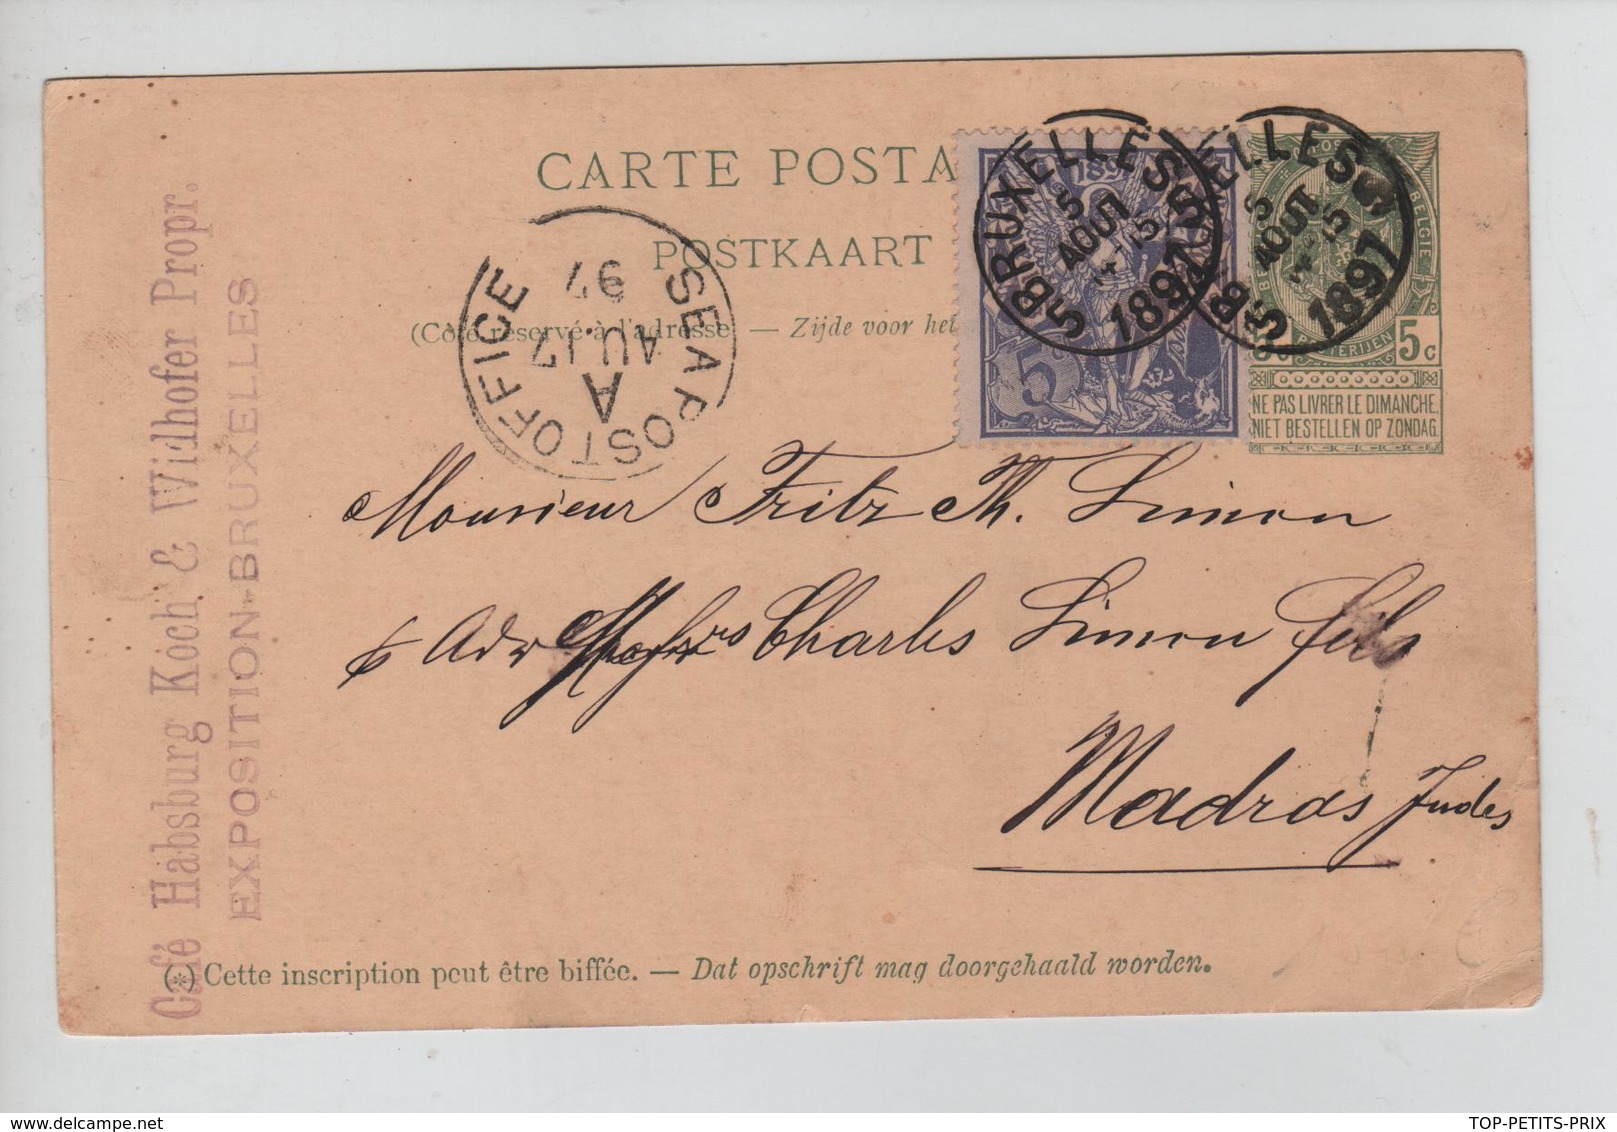 CARTE POSTA
POSTKAART
(Côté réservé à l'adresse. — Zijde voor het
SEA POST OFFICE
A
AU.17
97
189
5
BRUXELLES 5
5
AOUT
15
1897
BRUXELLES 5
5
AOUT
15
1897
BELGIE
POSTERIJEN
5 c
NE PAS LIVRER LE DIMANCHE.
NIET BESTELLEN OP ZONDAG.
Monsieur Fritz Th. Simon
Adr Charles Simon fils
Madras Indes
Café Habsburg Koch & Widhofer Propr.
EXPOSITION-BRUXELLES
(*) Cette inscription peut être biffée. — Dat opschrift mag doorgehaald worden.
TOP-PETITS-PRIX